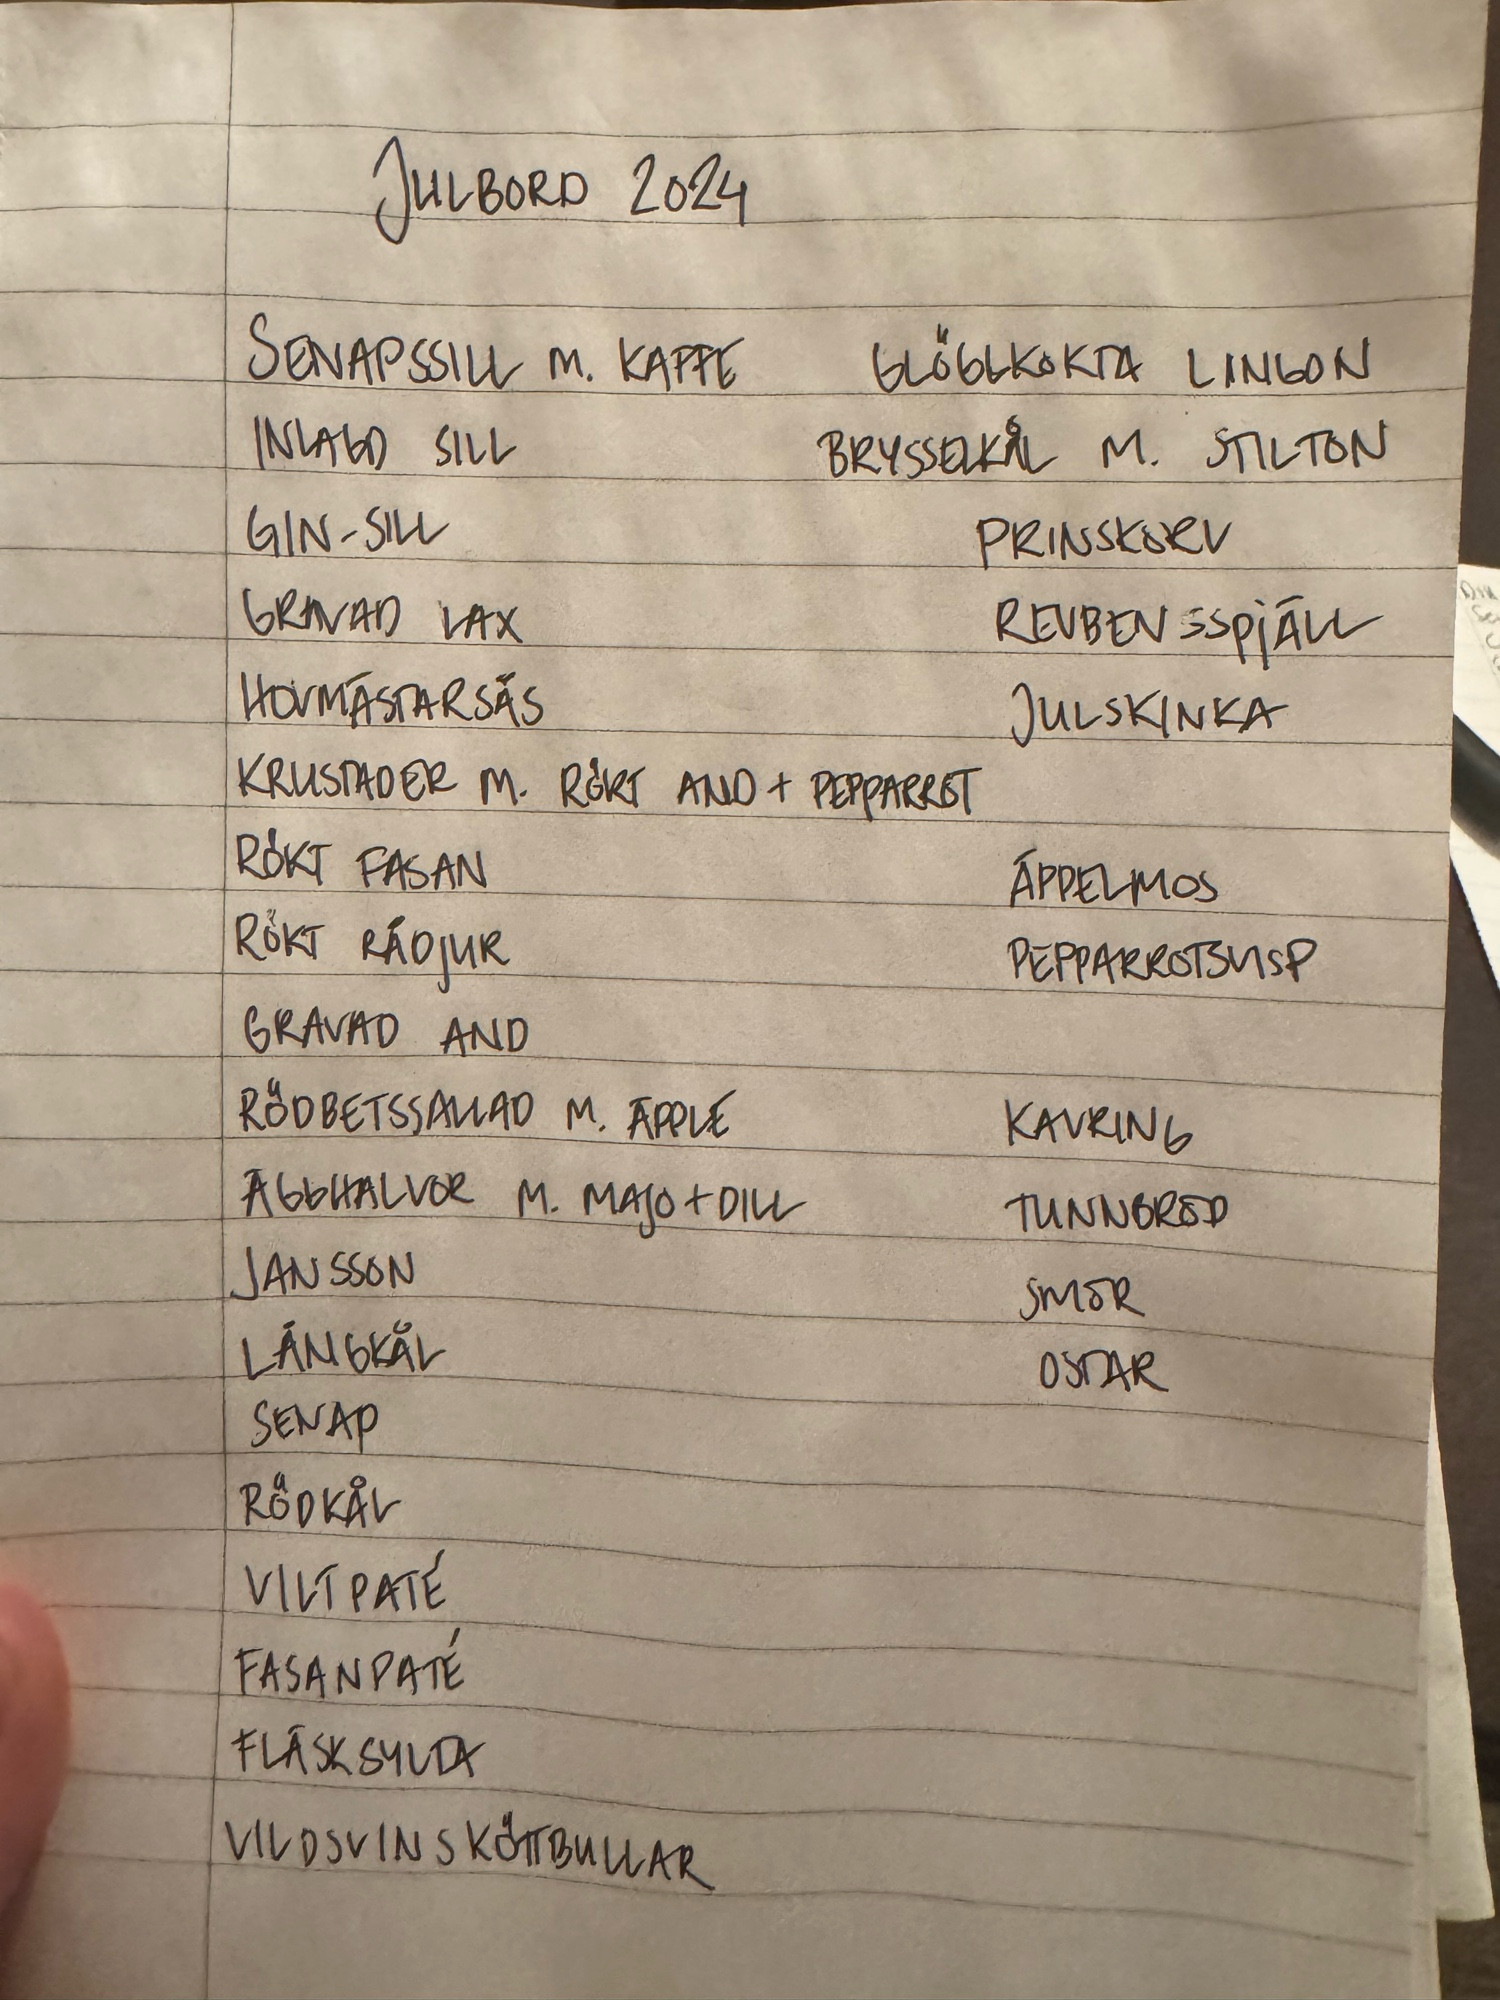 JULBORD 2024
SENAPSSILL M. KAFFE
INLAGD SILL
GIN-SILL
GRAVAD LAX
HOVMÄSTARSÅS
KRUSTADER M. RÖKT AND + PEPPARROT
RÖKT FASAN
RÖKT RÅDJUR
GRAVAD AND
RÖDBETSSALLAD M. ÄPPLE
ÄGGHALVOR M. MAJO + DILL
JANSSON
LÅNGKÅL
SENAP
RÖDKÅL
VILTPATÉ
FASANPATÉ
FLÄSKSYLTA
VILDSVINSKÖTTBULLAR
GLÖGGKOKTA LINGON
BRYSSELKÅL M. STILTON
PRINSKORV
REVBENSSPJÄLL
JULSKINKA
ÄPPELMOS
PEPPARROTSVISP
KAVRING
TUNNBRÖD
SMÖR
OSTAR